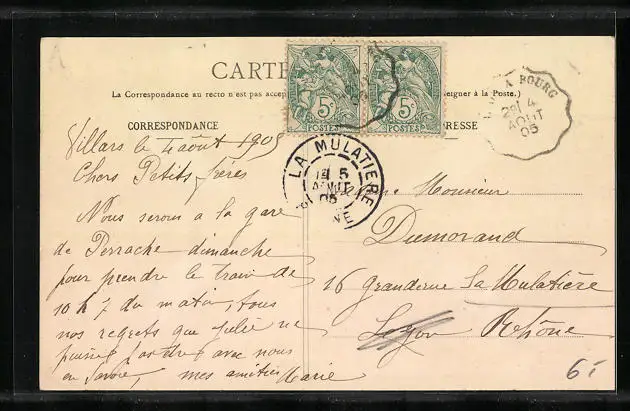 CARTE
La Correspondance au recto n'est pas accep
eigner à la Poste.)
CORRESPONDANCE
RESSE
5c
POSTES
5c
POSTES
A BOURG
4
AOUT
05
LA MULATIERE
5
AOUT
05
Villars le 4 août 1905
Chers Petits frères
Nous serons a la gare
de Perrache dimanche
pour prendre le train de
10 h 7 du matin, tous
nos regrets que Julie ne
puisse avec nous
en Savoie, mes amitiés Marie
Monsieur
Dumorand
16 Granderue La Mulatière
Lyon Rhône
6